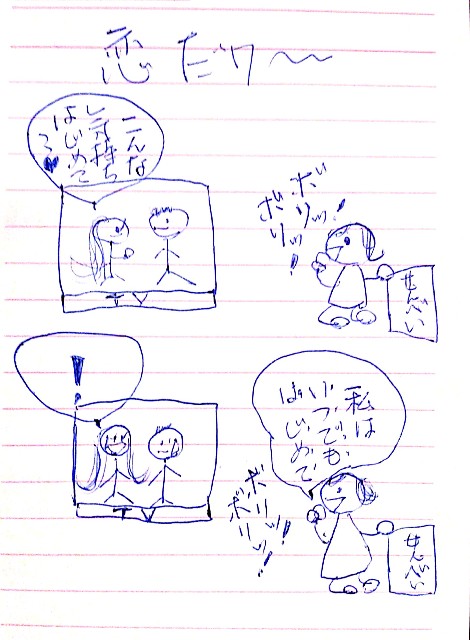 恋だワ〜
こんな
気持ち
はじめて
っ♥
ボリッ!
ボリッ!
せんべい
TV
!
私は
いつでも
はじめて
ボリッ!
ボリッ!
せんべい
TV